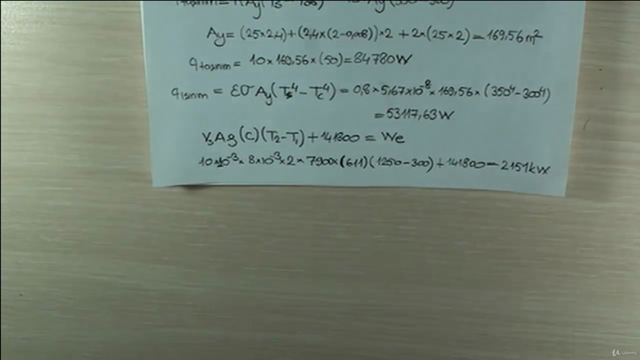 Ay = (25×2,4)+(2,4×(2-0,008))×2 + 2×(25×2) = 169,56 m²
qtaşınım = 10×169,56×(50) = 84780W
qışınım = εσAy(Ts⁴-Tç⁴) = 0,8×5,67×10⁻⁸×169,56×(350⁴-300⁴)
= 53117,63W
(C)(T2-T1)+141800 = We
10×10⁻³×8×10⁻³×2×7900×(611)(1250-300)+141800 = 2151kW